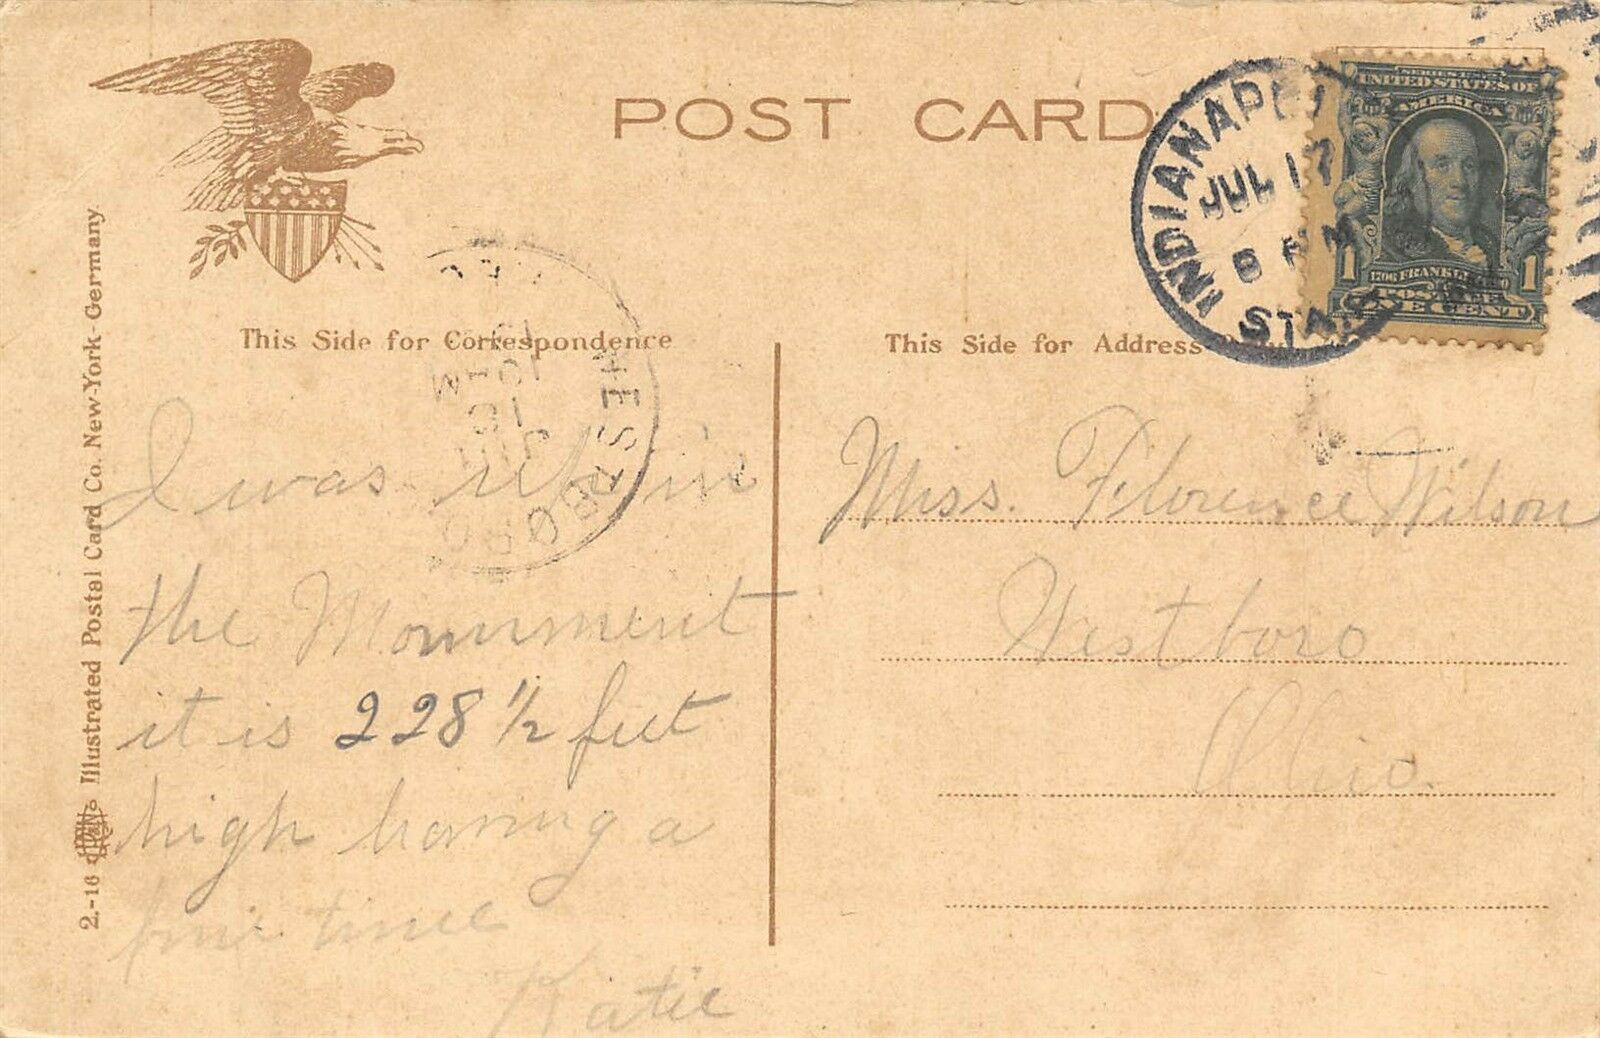 POST CARD
INDIANAPOLI
JUL 17
8 PM
STA.
SERIES 1902
UNITED STATES OF
AMERICA
1706 FRANKLIN 1790
POSTAGE
1 ONE CENT 1
This Side for Correspondence
This Side for Address
I was up in
the Monument
it is 228 1/2 feet
high having a
fine time
Katie
Miss. Florence Wilson
Westboro
Ohio.
2.-16 Illustrated Postal Card Co. New-York-Germany